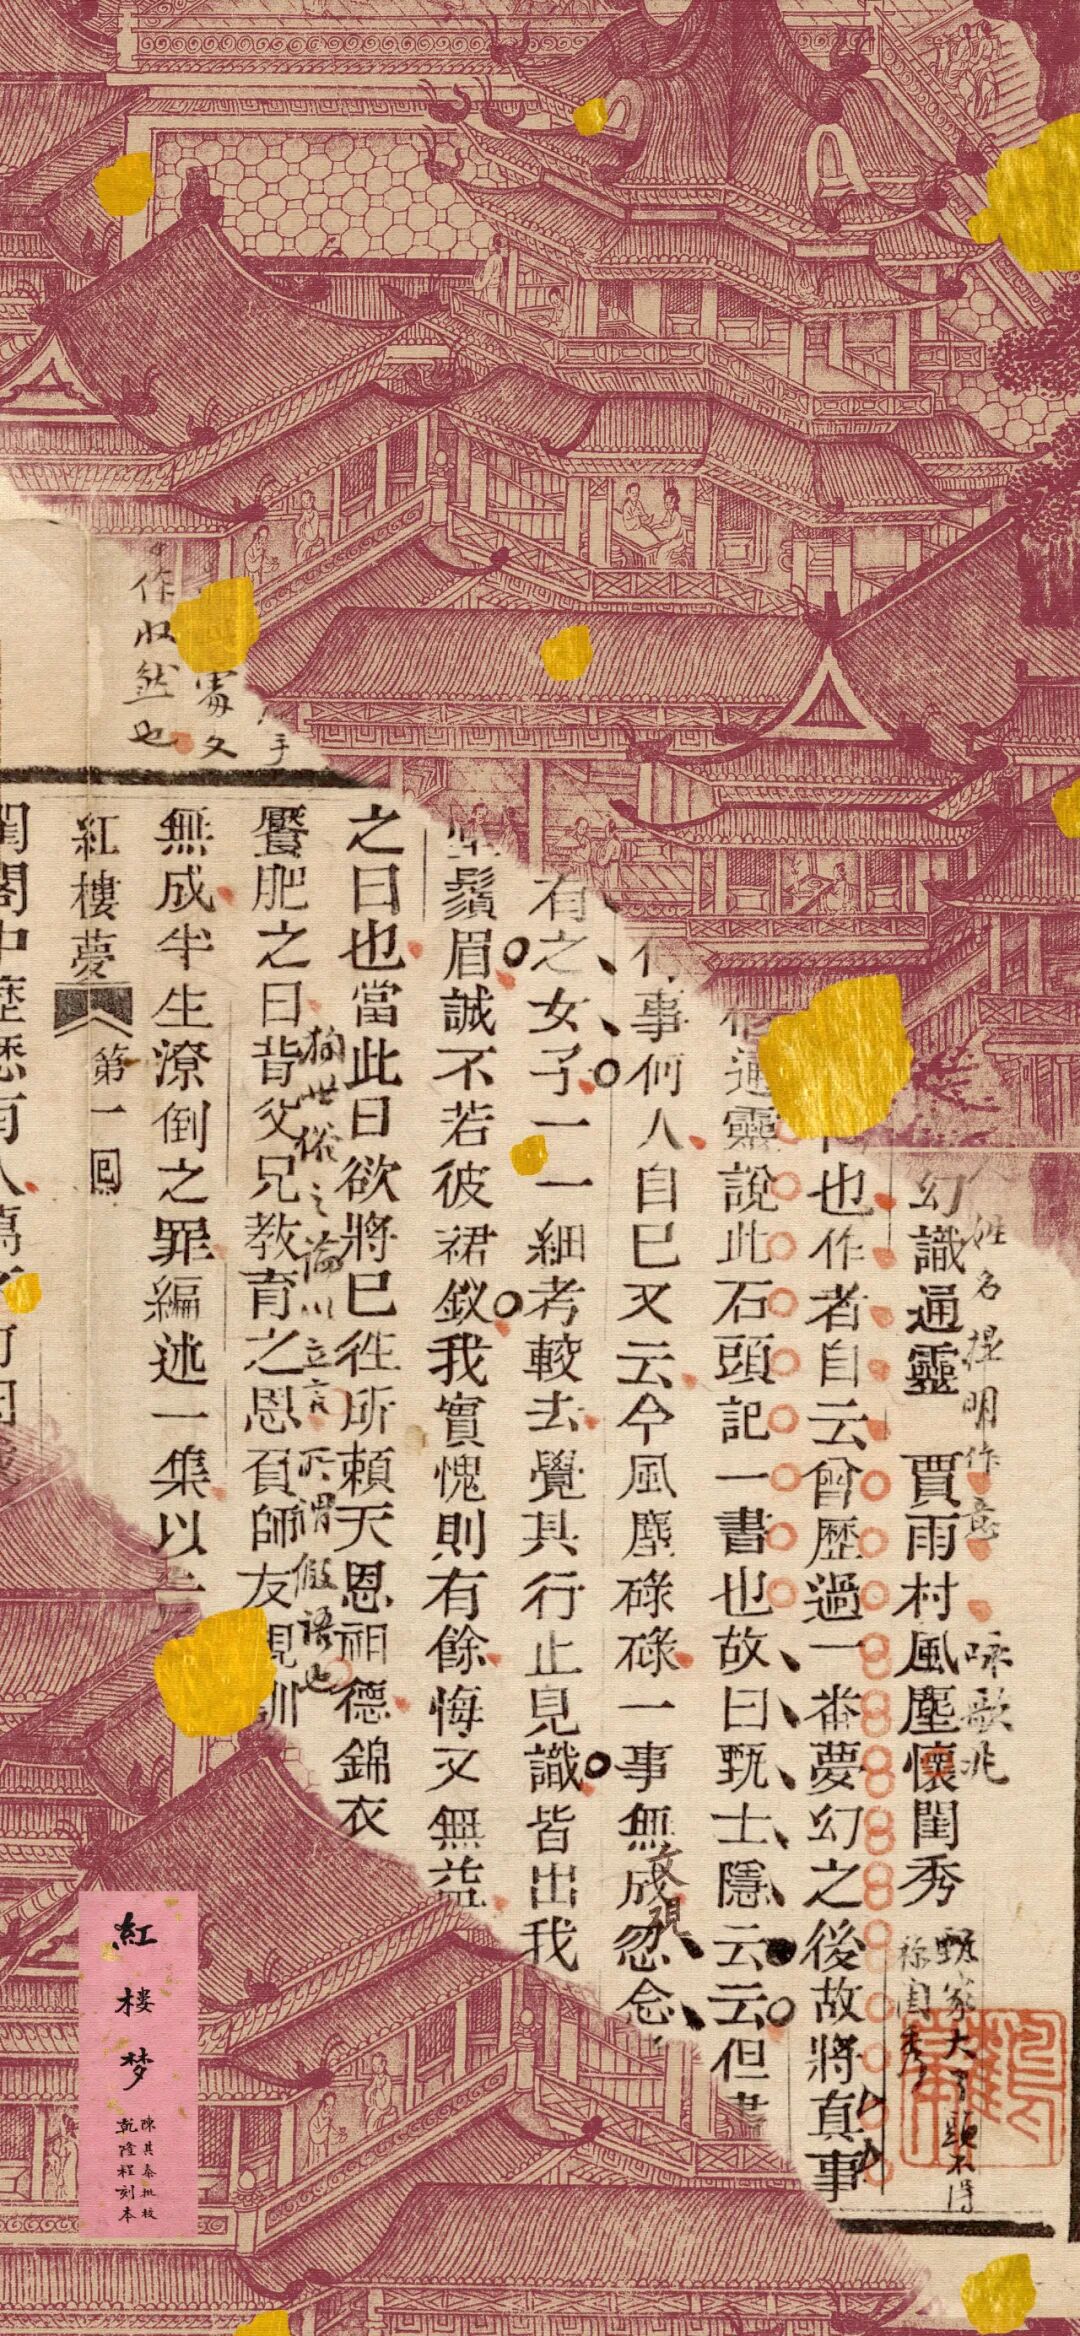 幻識通靈　賈雨村風塵懷閨秀
也作者自云曾歷過一番夢幻之後故將真事
通靈說此石頭記一書也故曰甄士隱云云但書
行事何人自己又云今風塵碌碌一事無成忽念
有之女子一一細考較去覺其行止見識皆出我
鬚眉誠不若彼裙釵我實愧則有餘悔又無益
之日也當此日欲將已往所賴天恩祖德錦衣
饜肥之日背父兄教育之恩負師友規訓
無成半生潦倒之罪編述一集以
紅樓夢　第一回
閨閣中歷歷有人萬
姓名提明作意
咏歌兆
甄家大丫頭不得
稱閨秀
文視
徇世俗之論以立言所謂假語也
作收然也
紅樓梦
陳其泰批校
乾隆程刻本